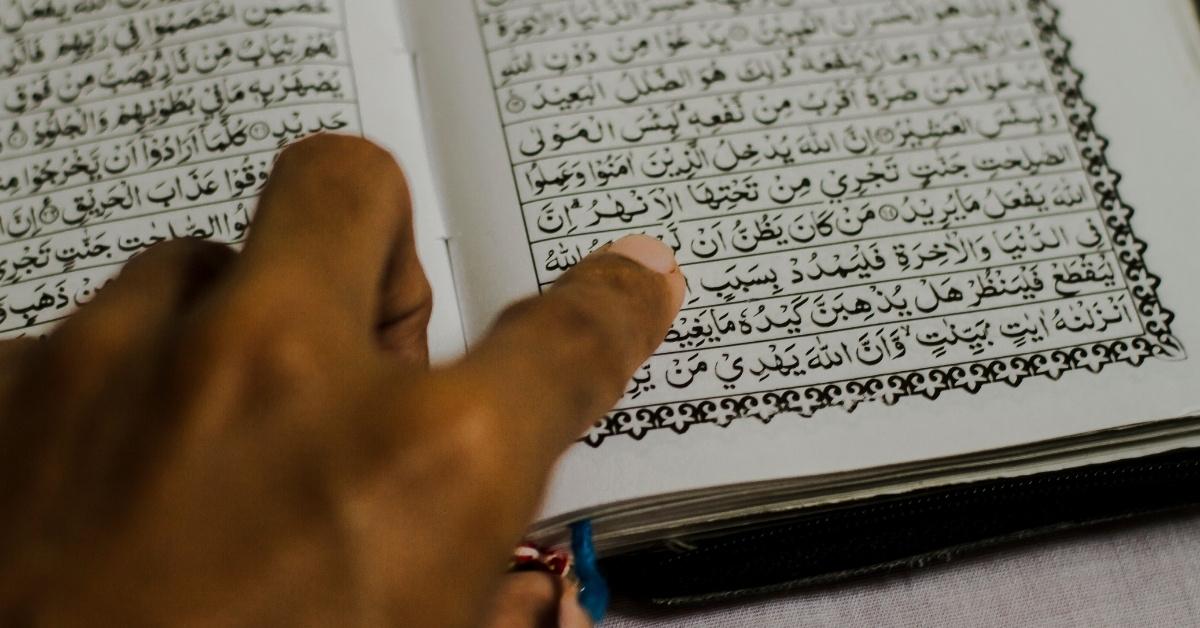 خَسِرَ الدُّنْيَا وَالْاٰخِرَةَ
ذٰلِكَ هُوَ الْخُسْرَانُ الْمُبِيْنُ ۝۱۱ يَدْعُوْا مِنْ دُوْنِ اللّٰهِ
مَالَا يَضُرُّهٗ وَمَالَا يَنْفَعُهٗ ذٰلِكَ هُوَ الضَّلٰلُ الْبَعِيْدُ ۝۱۲
يَدْعُوْا لَمَنْ ضَرُّهٗۤ اَقْرَبُ مِنْ نَّفْعِهٖ لَبِئْسَ الْمَوْلٰى
وَلَبِئْسَ الْعَشِيْرُ ۝۱۳ اِنَّ اللّٰهَ يُدْخِلُ الَّذِيْنَ اٰمَنُوْا وَعَمِلُوا
الصّٰلِحٰتِ جَنّٰتٍ تَجْرِيْ مِنْ تَحْتِهَا الْاَنْهٰرُ اِنَّ
اللّٰهَ يَفْعَلُ مَايُرِيْدُ ۝۱۴ مَنْ كَانَ يَظُنُّ اَنْ اللّٰهُ
فِى الدُّنْيَا وَالْاٰخِرَةِ فَلْيَمْدُدْ بِسَبَبٍ
لْيَقْطَعْ فَلْيَنْظُرْ هَلْ يُذْهِبَنَّ كَيْدُهٗ مَايَغِيْظُ
اَنْزَلْنٰهُ اٰيٰتٍ بَيِّنٰتٍ وَّاَنَّ اللّٰهَ يَهْدِيْ مَنْ
اللّٰهَ يَفْعَلُ
خَصْمٰنِ اخْتَصَمُوْا فِيْ رَبِّهِمْ
لَهُمْ ثِيَابٌ مِّنْ نَّارٍ يُصَبُّ مِنْ فَوْقِ
يُصْهَرُ بِهٖ مَا فِيْ بُطُوْنِهِمْ وَالْجُلُوْدُ
حَدِيْدٍ ۝۲۱ كُلَّمَاۤ اَرَادُوْۤا اَنْ يَّخْرُجُوْا
عَذَابَ الْحَرِيْقِ ۝۲۲ اِنَّ
الصّٰلِحٰتِ جَنّٰتٍ
مِنْ ذَهَبٍ